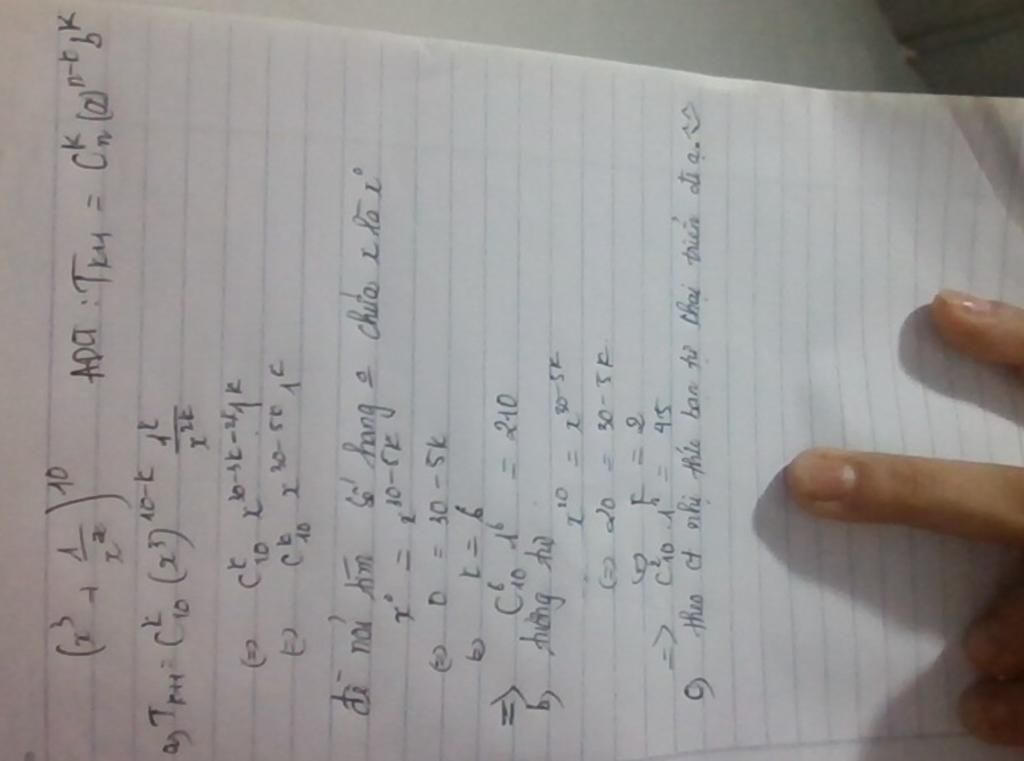 (x³ + 1/x²)^10 ADCT : T_{k+1} = C_n^k (a)^{n-k} b^k
a, T_{k+1} = C_10^k (x³)^{10-k} 1^k/x^{2k}
(=) C_10^k x^{30-3k-2k} 1^k
(=) C_10^k x^{30-5k} 1^k
đề nói tìm số hạng 0 chứa x là x⁰
x⁰ = x^{30-5k}
(=) 0 = 30-5k
(=) k = 6
=> C_10^6 1^6 = 210
b, tương tự x^{20} = x^{30-5k}
(=) 20 = 30-5k
(=) k = 2
=> C_10^2 1^2 = 45
c, theo ct nhị thức bạn tự khai triển đi ạ.